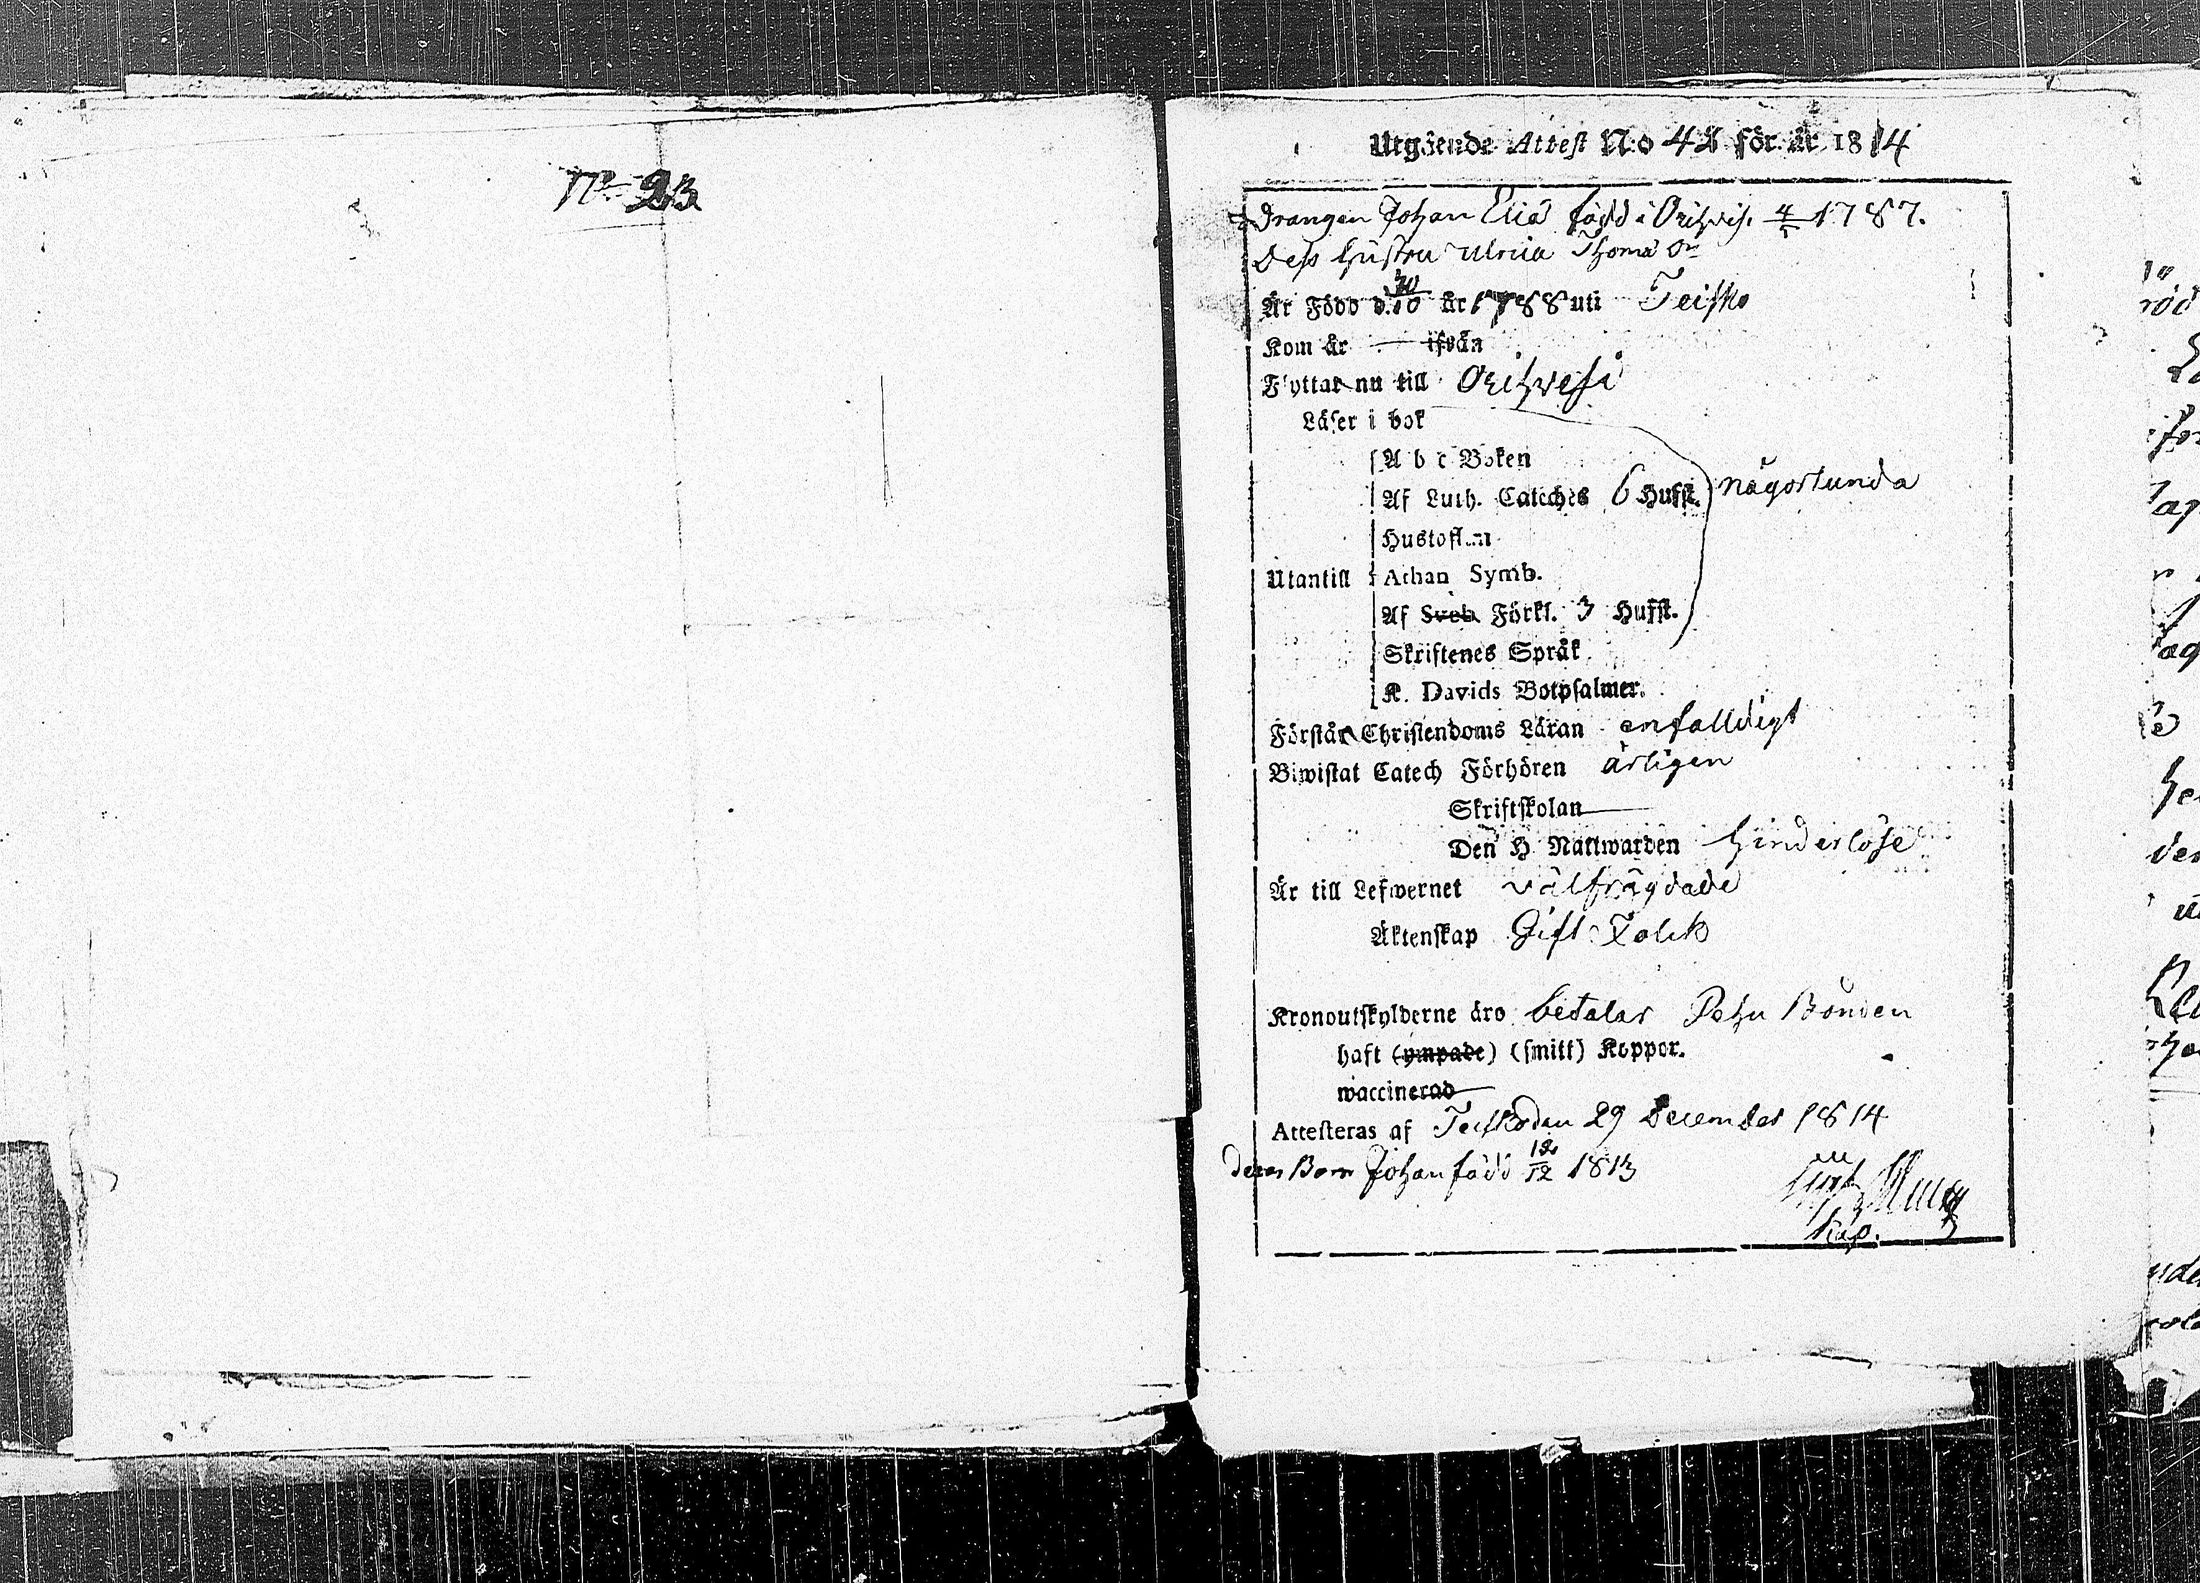 No 23
Utgående Attest N:o 42 för år 1814
Drangen Johan Elia född i Orihvesi 4/5 1787.
Dess hustru Ulrica Thoma Dr
Är Född d. 30/10 år 1788 uti Teisko
Kom år ifrån
Flyttar nu till Orihvesi
Läser i bok
A b c Boken
Af Luth. Cateches 6 Hufst. någorlunda
Hustaflan
Utantill Athan Symb.
Af Sveb. Förkl. 3 Hufst.
Skriftenes Språk
K. Davids Botpsalmer.
Förstår Christendoms Läran enfalldigt
Biwistat Catech Förhören årligen
Skriftskolan
Den H Nattwarden hinderlöse
Är till Lefwernet välfrägdade
Äktenskap Gift Folck
Kronoutskylderne äro betalar Bonden
haft (ympade) (smitt) Koppor.
waccinerad
Attesteras af Teisko den 29 December 1814
deras Barn Johan född 12/12 1813
Kap.